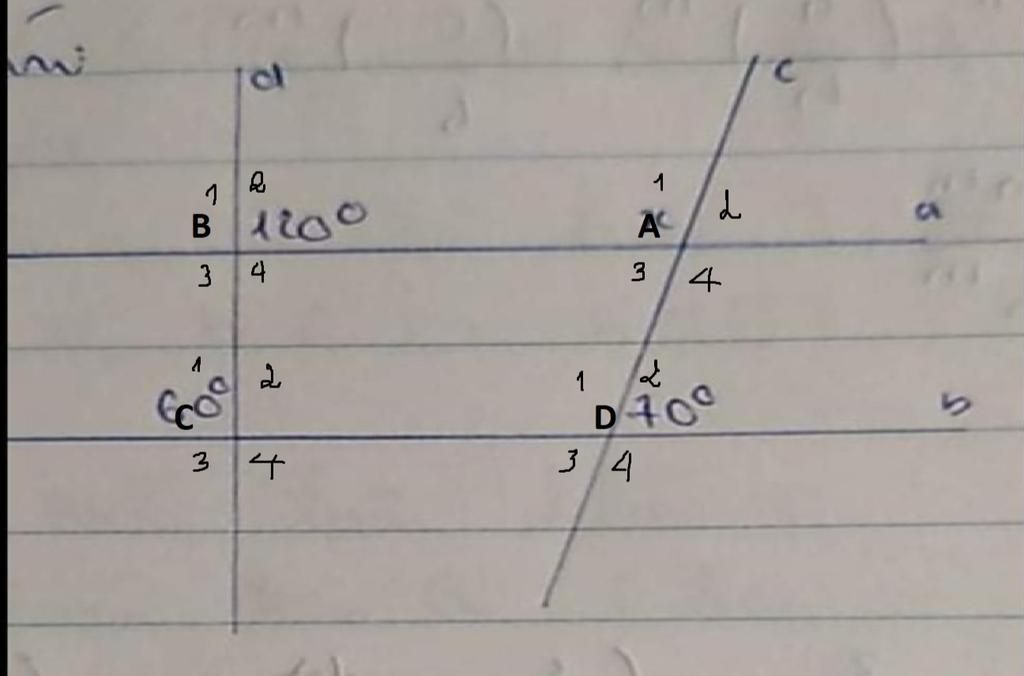 d c
1 2 1 2
B 120° A x a
3 4 3 4
1 2 1 2
60° C D 70° b
3 4 3 4